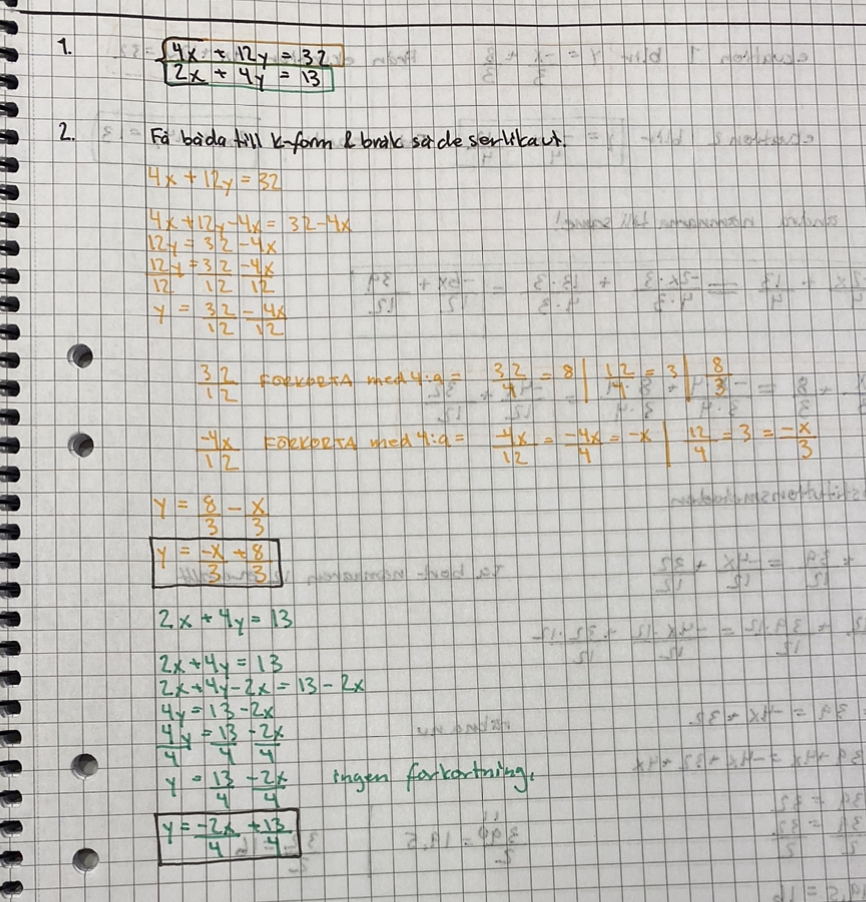 1. 4x + 12y = 32
2x + 4y = 13
2. Få båda till k-form & bråk så de ser lika ut.
4x + 12y = 32
4x + 12y - 4x = 32 - 4x
12y = 32 - 4x
12y/12 = 32/12 - 4x/12
y = 32/12 - 4x/12
32/12 FÖRKORTA med 4:a = 32/4 = 8 | 12/4 = 3 | 8/3
-4x/12 FÖRKORTA med 4:a = -4x/12 = -4x/4 = -x | 12/4 = 3 = -x/3
y = 8/3 - x/3
y = -x/3 + 8/3
2x + 4y = 13
2x + 4y = 13
2x + 4y - 2x = 13 - 2x
4y = 13 - 2x
4y/4 = 13/4 - 2x/4
y = 13/4 - 2x/4 ingen förkortning.
y = -2x/4 + 13/4